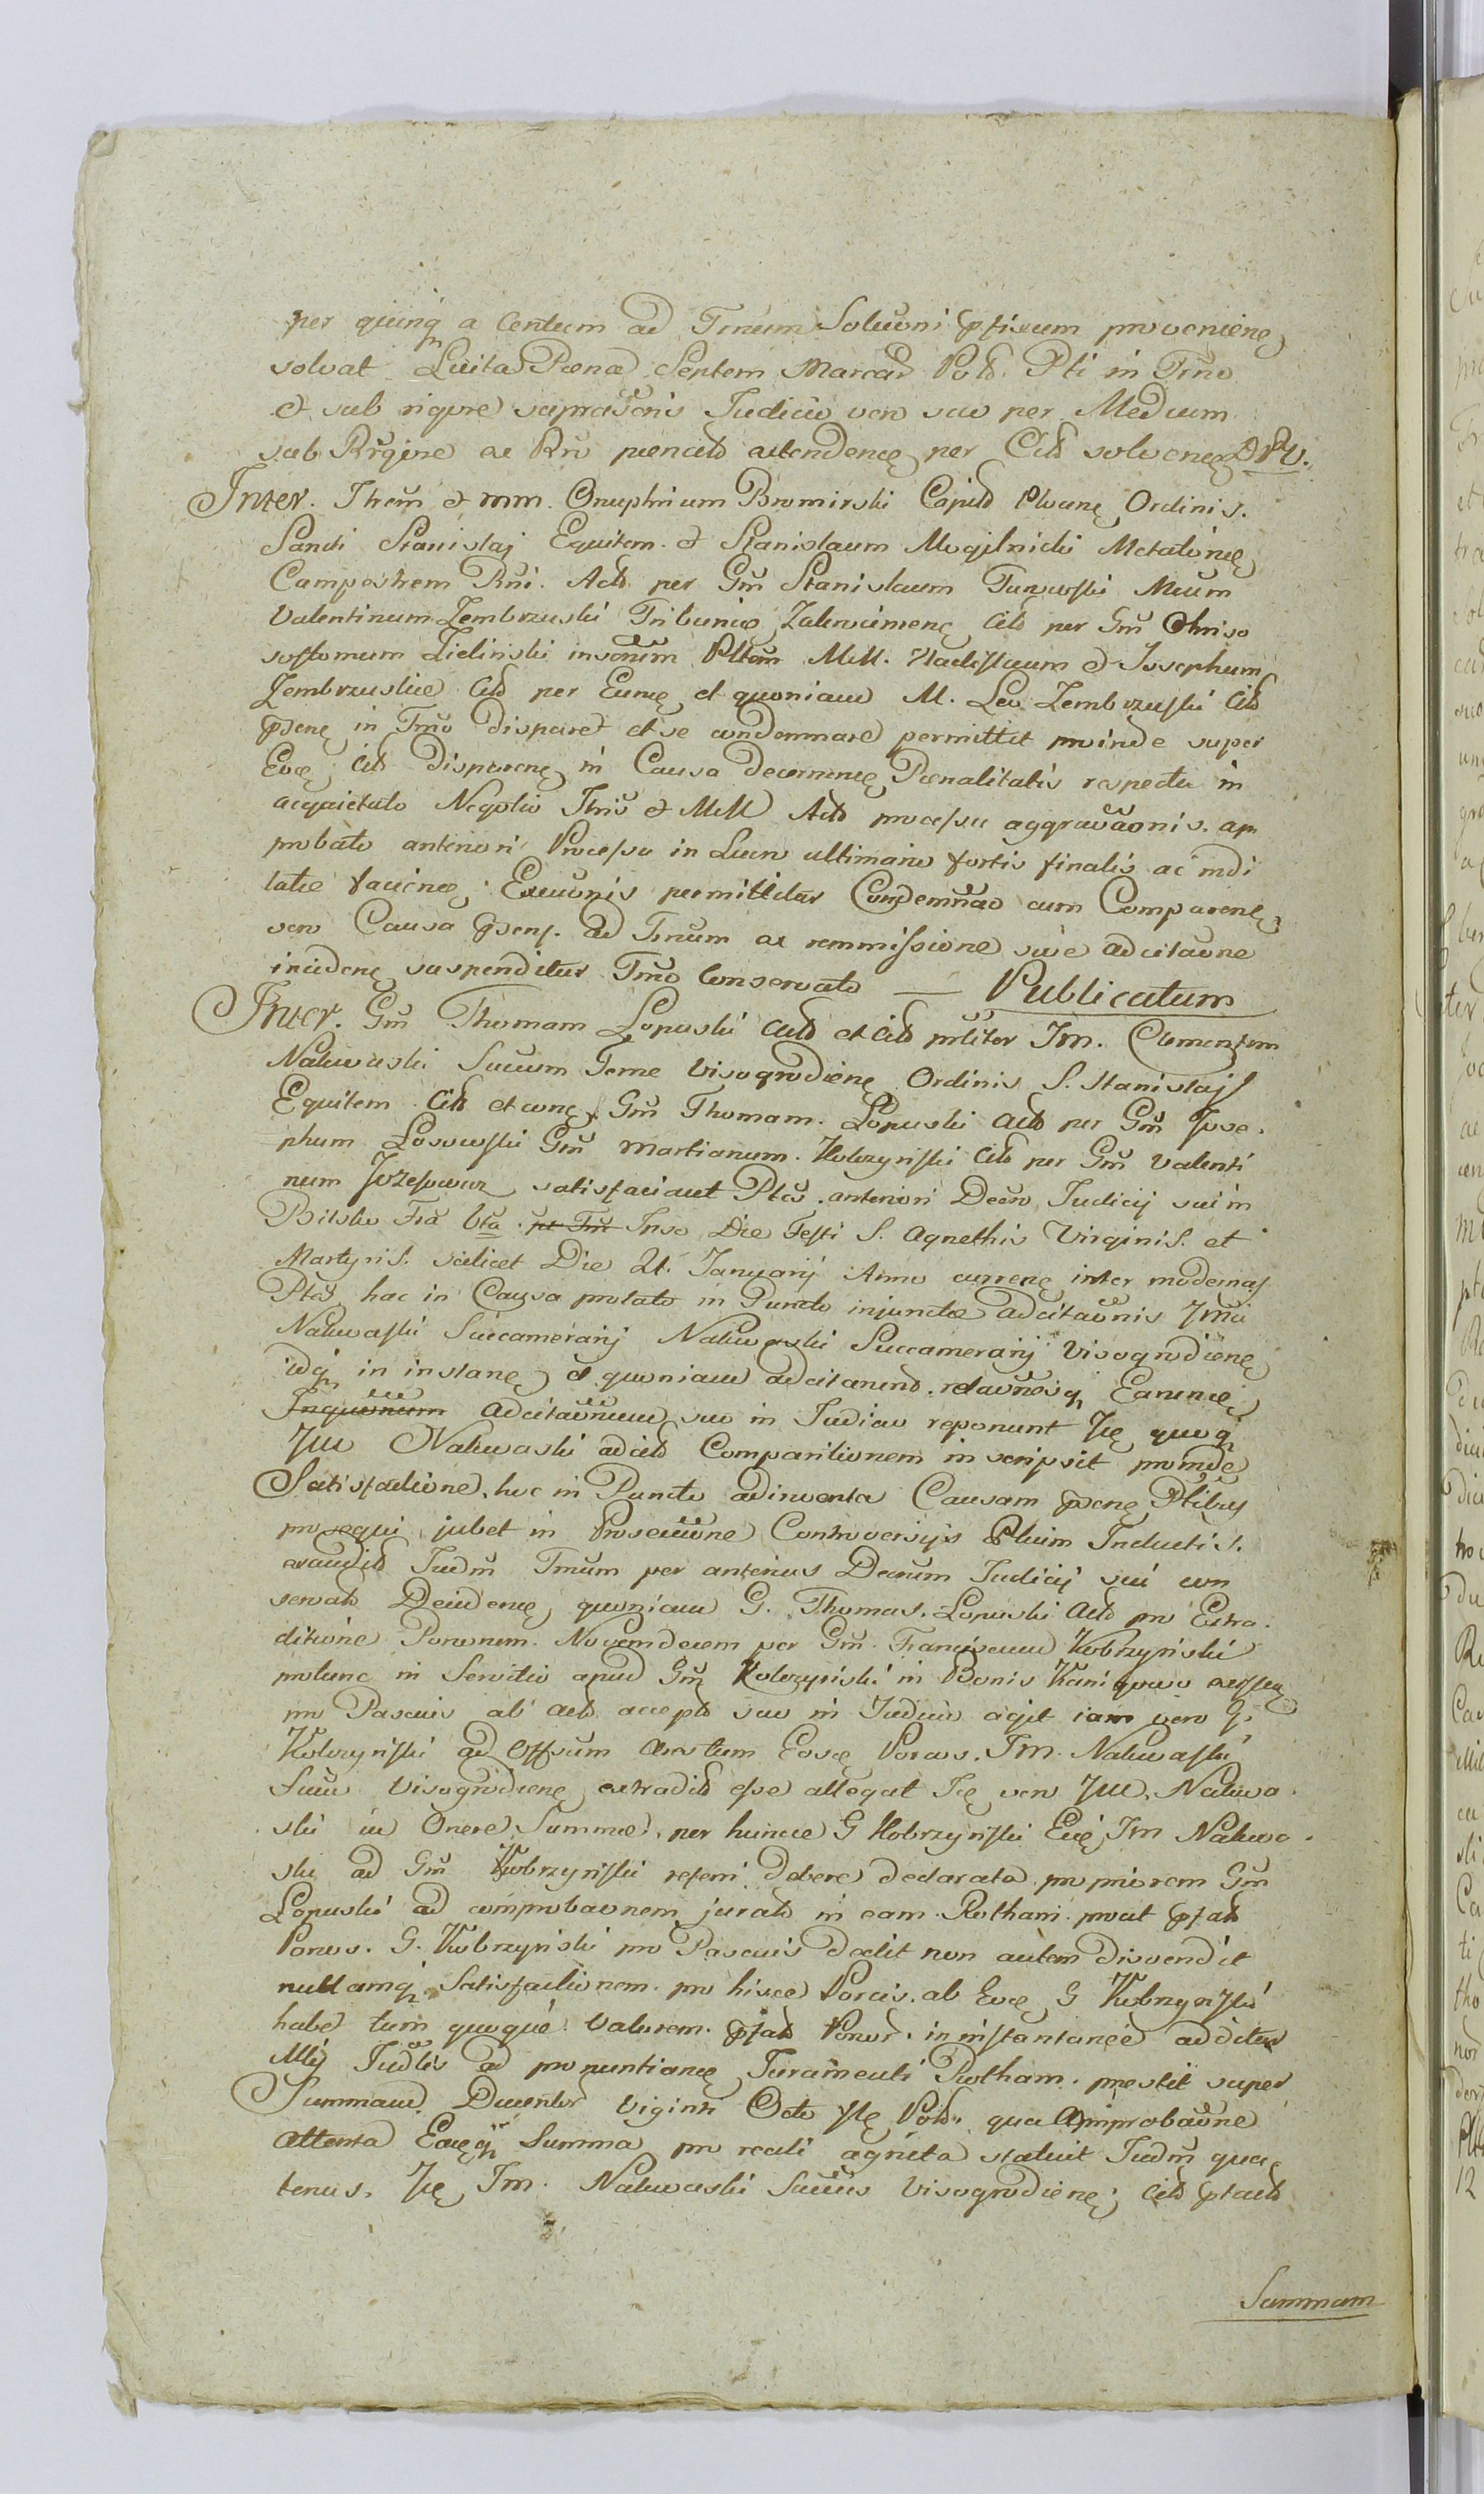 per quinq a Centum ad Trnum Soluoni pfixum provenienę
solvat Luita Poena Septem Marcar Polo Pti in Trno
et sub rigore suprascris Judicio vero suo per Medium
sub Rrgine ac Rrii poenalo attendencę per Cito solvenę DPU.
Inter. Ithrem et mm. Onuphrium Bromirski Capito Plocenę Ordinis.
Sancti Stanislaj Equitem et Stanislaum Mogilnicki Metatorię
Campestrem Rni. Acto per Gm Stanislaum Turowski Mcum
Valentinum Zembrzuski Tribunię Zakrocimenę Cito per Gm Chriso
sostomum Zielinski Pltem MM. Vladislaum et Josephum
Zembrzuskie Cito per Eunę et quoniam M. Leo Zembrzuski Cito
psenę in Trmo disparet et se condemnare permittit proinde super
Eoę Cito disparenę in Causa decernenę Poenalitatis respectu in
acquietato Negotio Ithris et MM Acto processu aggravaonis. ap
probato anteriori Processu in Lucro ultimario fortis finalis ac indi
latae faciendae Execuonis permittitur Condemnao cum Comparenę
vero Causa psens. ad Trnum ex remmissione sive adcitaone
incidenę suspenditur Trno Conservato — Publicatum
Inter. Gm Thomam Lopuski Acto et Cito prliter Im. Clementem
Nakwaski Succum Terrae Visogrodienę Ordinis S. Stanislaj
Equitem Cito et conę Gm Thomam. Lopuski Acto per Gm Jose.
phum Losowski Gm Martianum. Kobrzyński Cito per Gm Valenti
num satisfaciant Ptes anteriori Decro Judicij sui in
Bilsko Fra Vta pt Trn Inso Die Festi S. Agnethis Virginis. et
Martyris. scilicet Die 21. Januarij Anno currenę inter modernas
Ptes hac in Causa prolato in Puncto injunctae adcitaonis Jmci
Nakwaski Succamerarij Nakwaski Succamerarij Visogrodienę
idq in instanę et quoniam adcitanend. relaonesq Earumę
Inquonum adcitaonum suo in Judicio reponunt Ię quoq
IM Nakwaski adcit Comparitionem inscripsit proinde
Satisfactione. hoc in Puncto adinventa Causam psenę Ptibus
prosequi jubet in Prosecuone Controversijs Ptium Inductis.
exaudito Judm Trnum per anterius Decrum Judicij sui con
servato Deciderię quoniam G. Thomas. Lopuski Acto pro Extra.
ditione Porcorum. Novemdecem per Gm. Franciscum Kobrzyński
protunc in Servitio apud Gm Kobrzyński in Bonis Kanigowo
pro Pascuis ab Acto accepto suo in Judicio agit iam vero G.
Kobrzyński ad Offsum Eosę Porcos. Im. Nakwaski
Succo Visogrodienę extradito esse allegat Ię vero IM. Nakwa.
ski in Onere Summae. per huncce G Kobrzyński Eię Im Nakwa.
ski ad Gm Kobrzyński referri debere declarata pro priorem Gm
Lopuski ad comprobaonem jurato in eam Rotham. prout pfato
Porcos. G. Kobrzyński pro Pascuis dedit non autem disvendit
nullamq Satisfactionem. pro hisce Porcis. ab Eoę G Kobrzyński
habet tum quoque Valorem. pfato Porcor. in instantanee additis
Mtij Judlis ad pronuntianę Juramenti Rotham. prestit super
Summam Ducentor Viginti Octo Ię Polo. qua Comprobaone
attenta Eaęq Summa pro reali agnita statuit Judm qua
tenus. Ię Im. Nakwaski Succus Visogrodienę Cito pfacto
Summam